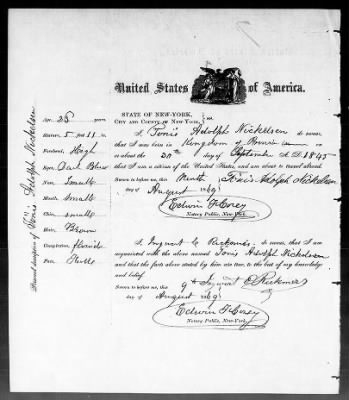 United States of America.
STATE OF NEW-YORK,
CITY AND COUNTY OF NEW-YORK, } ss.
I Tönis Adolph Nickelsen do swear
that I was born in Kingdom of
on or about the day of September A.D. 1845
that I am a citizen of the United States, and am about to travel abroad.
Sworn to before me, this Ninth Tönis Adolph Nickelsen
day of August 1869
Edwin F. Corey
Notary Public, New-York.
I, C. Rickmers do swear, that I am
acquainted with the above named Tönis Adolph Nickelsen
and that the facts above stated by him are true to the best of my knowledge
and belief.
Sworn to before me, this 9th C Rickmers
day of August 1869
Edwin F. Corey
Notary Public, New-York.
Personal description of Tönis Adolph Nickelsen
Age, 25 years
Stature, 5 feet 11 in.
Forehead, High
Eyes, Dark Blue
Nose, small
Mouth, small
Chin, small
Hair, Brown
Complexion, florid
Face, Full